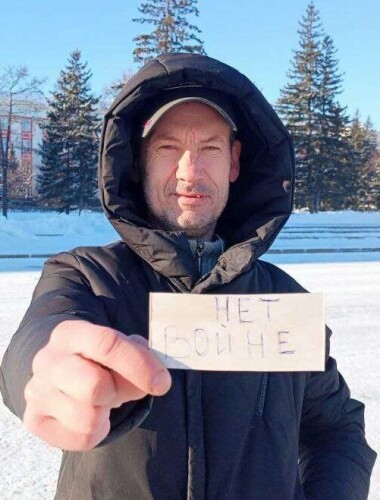 НЕТ
ВОЙНЕ